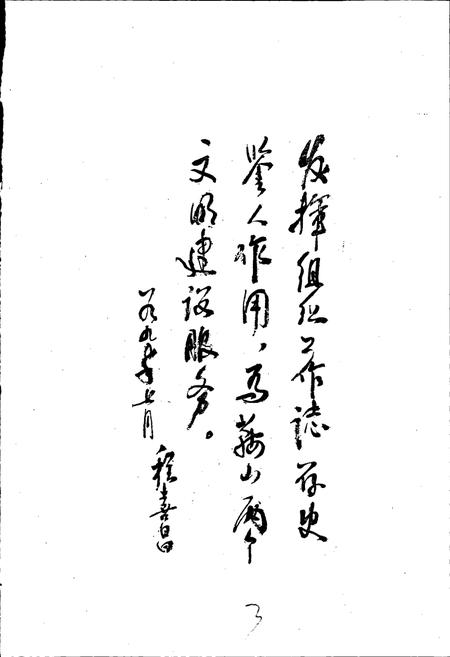 发挥组织工作誌存史
鉴人作用，为鞍山两个
文明建设服务。
一九九〇年七月
程喜昌
3